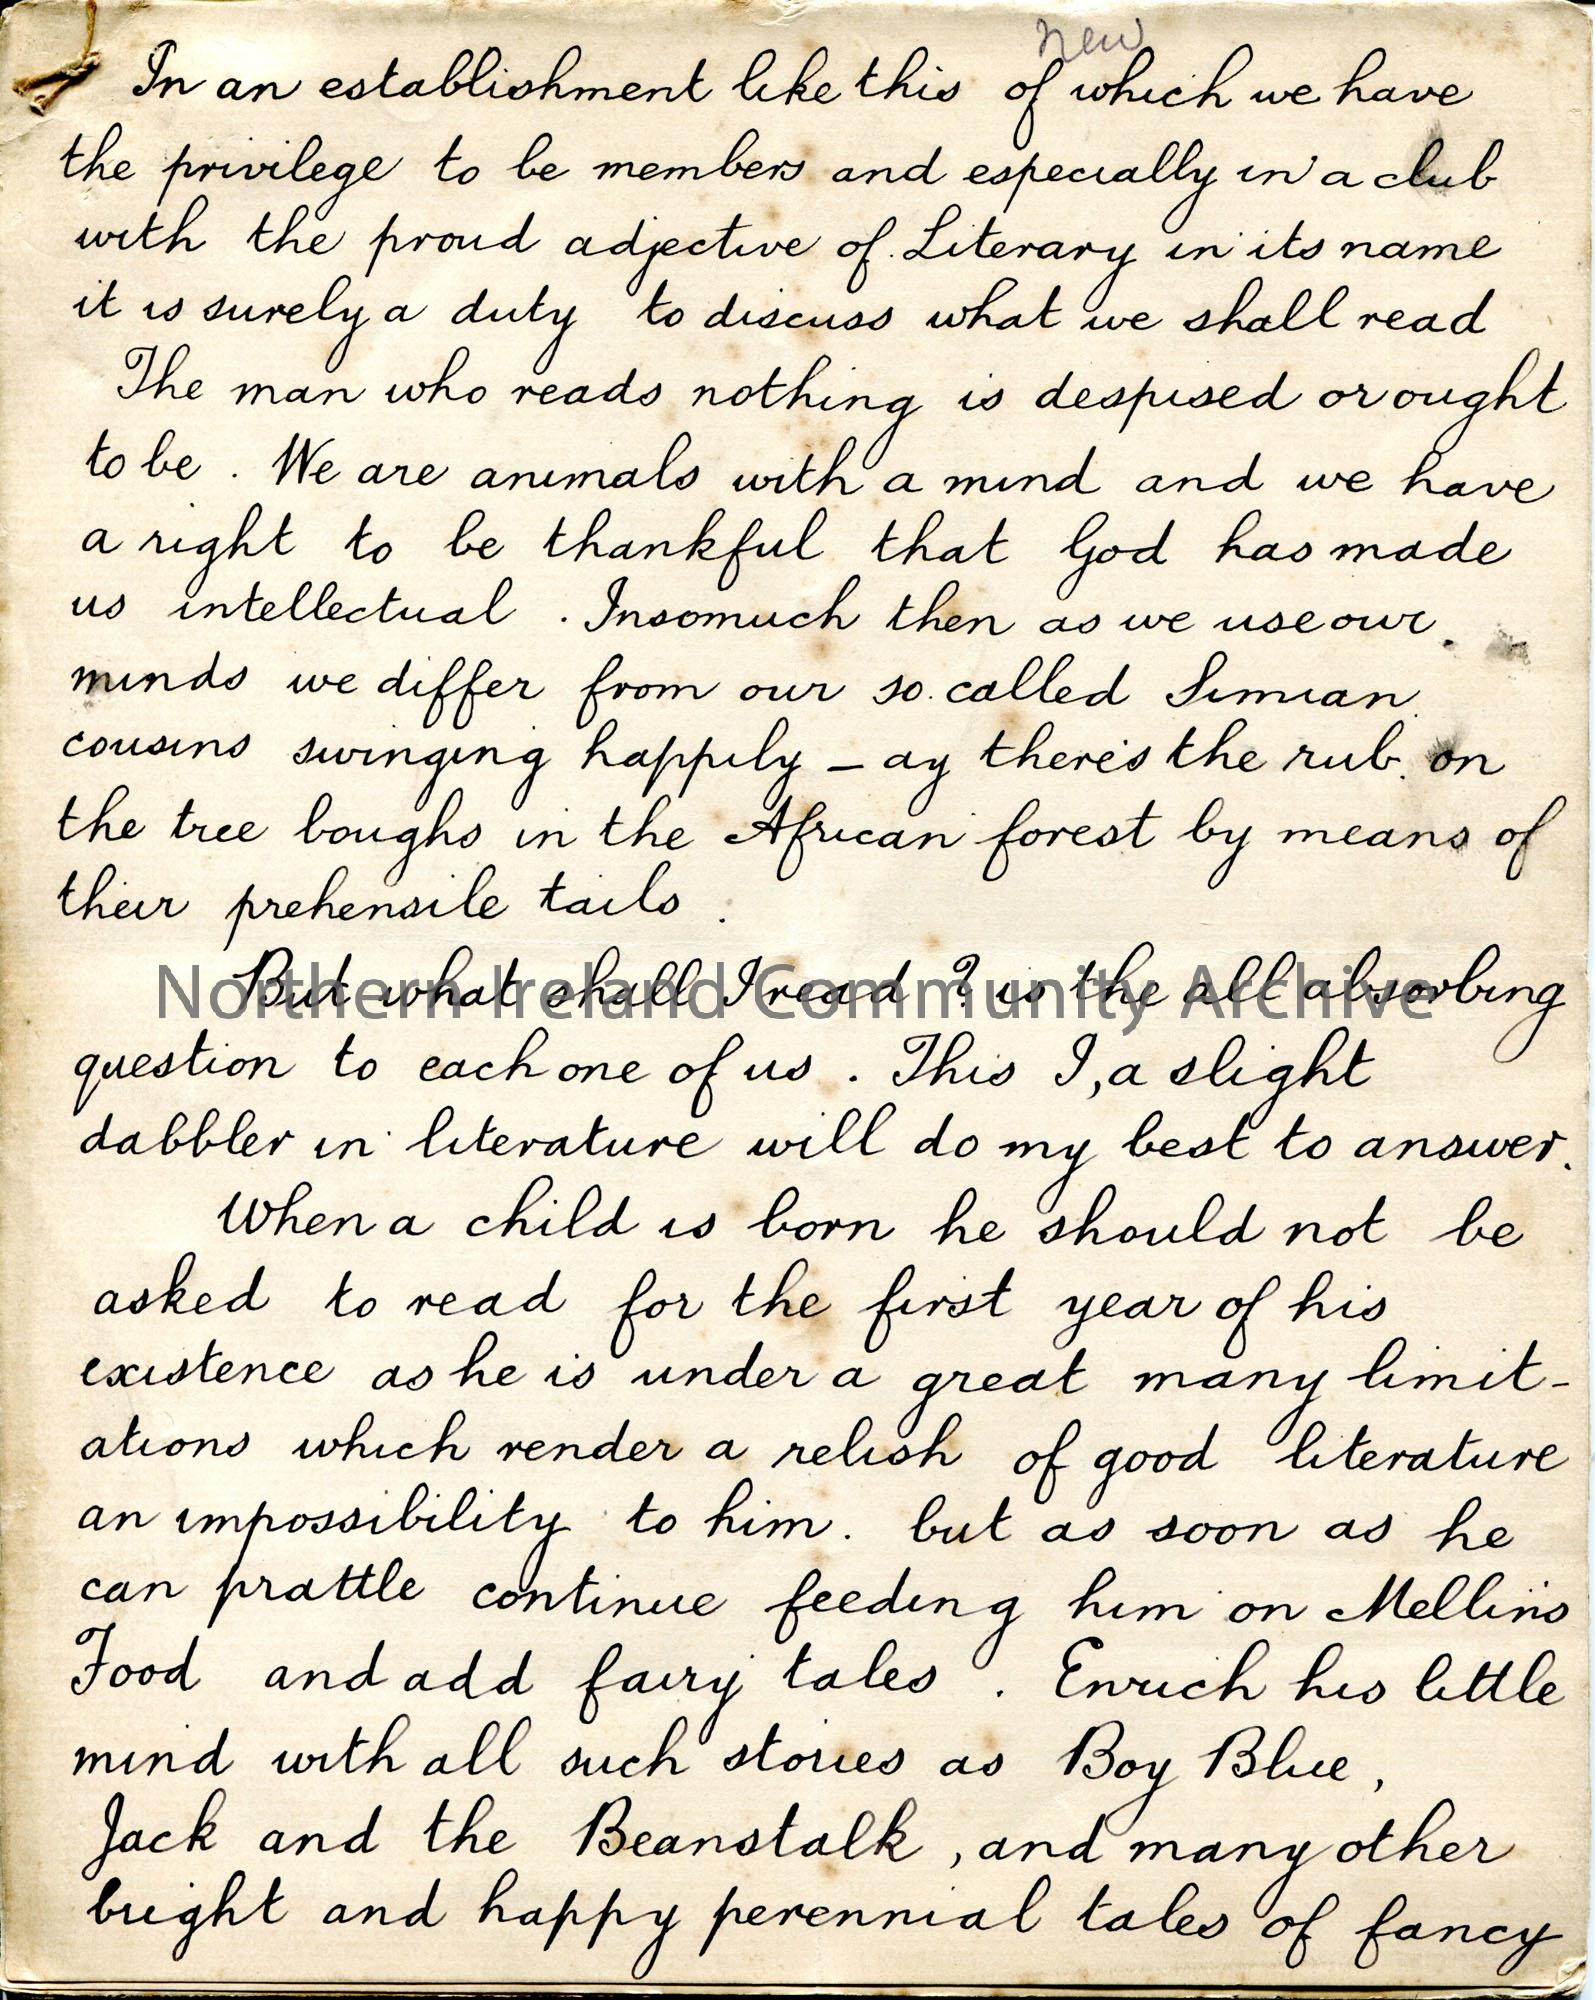 new
In an establishment like this of which we have
the privilege to be members and especially in a club
with the proud adjective of Literary in its name
it is surely a duty to discuss what we shall read
The man who reads nothing is despised or ought
to be. We are animals with a mind and we have
a right to be thankful that God has made
us intellectual. Insomuch then as we use our
minds we differ from our so called Simian
cousins swinging happily – ay there's the rub. on
the tree boughs in the African forest by means of
their prehensile tails.
But what shall I read? is the all absorbing
Northern Ireland Community Archive
question to each one of us. This I, a slight
dabbler in literature will do my best to answer.
When a child is born he should not be
asked to read for the first year of his
existence as he is under a great many limit-
ations which render a relish of good literature
an impossibility to him. but as soon as he
can prattle continue feeding him on Mellin's
Food and add fairy tales. Enrich his little
mind with all such stories as Boy Blue,
Jack and the Beanstalk, and many other
bright and happy perennial tales of fancy